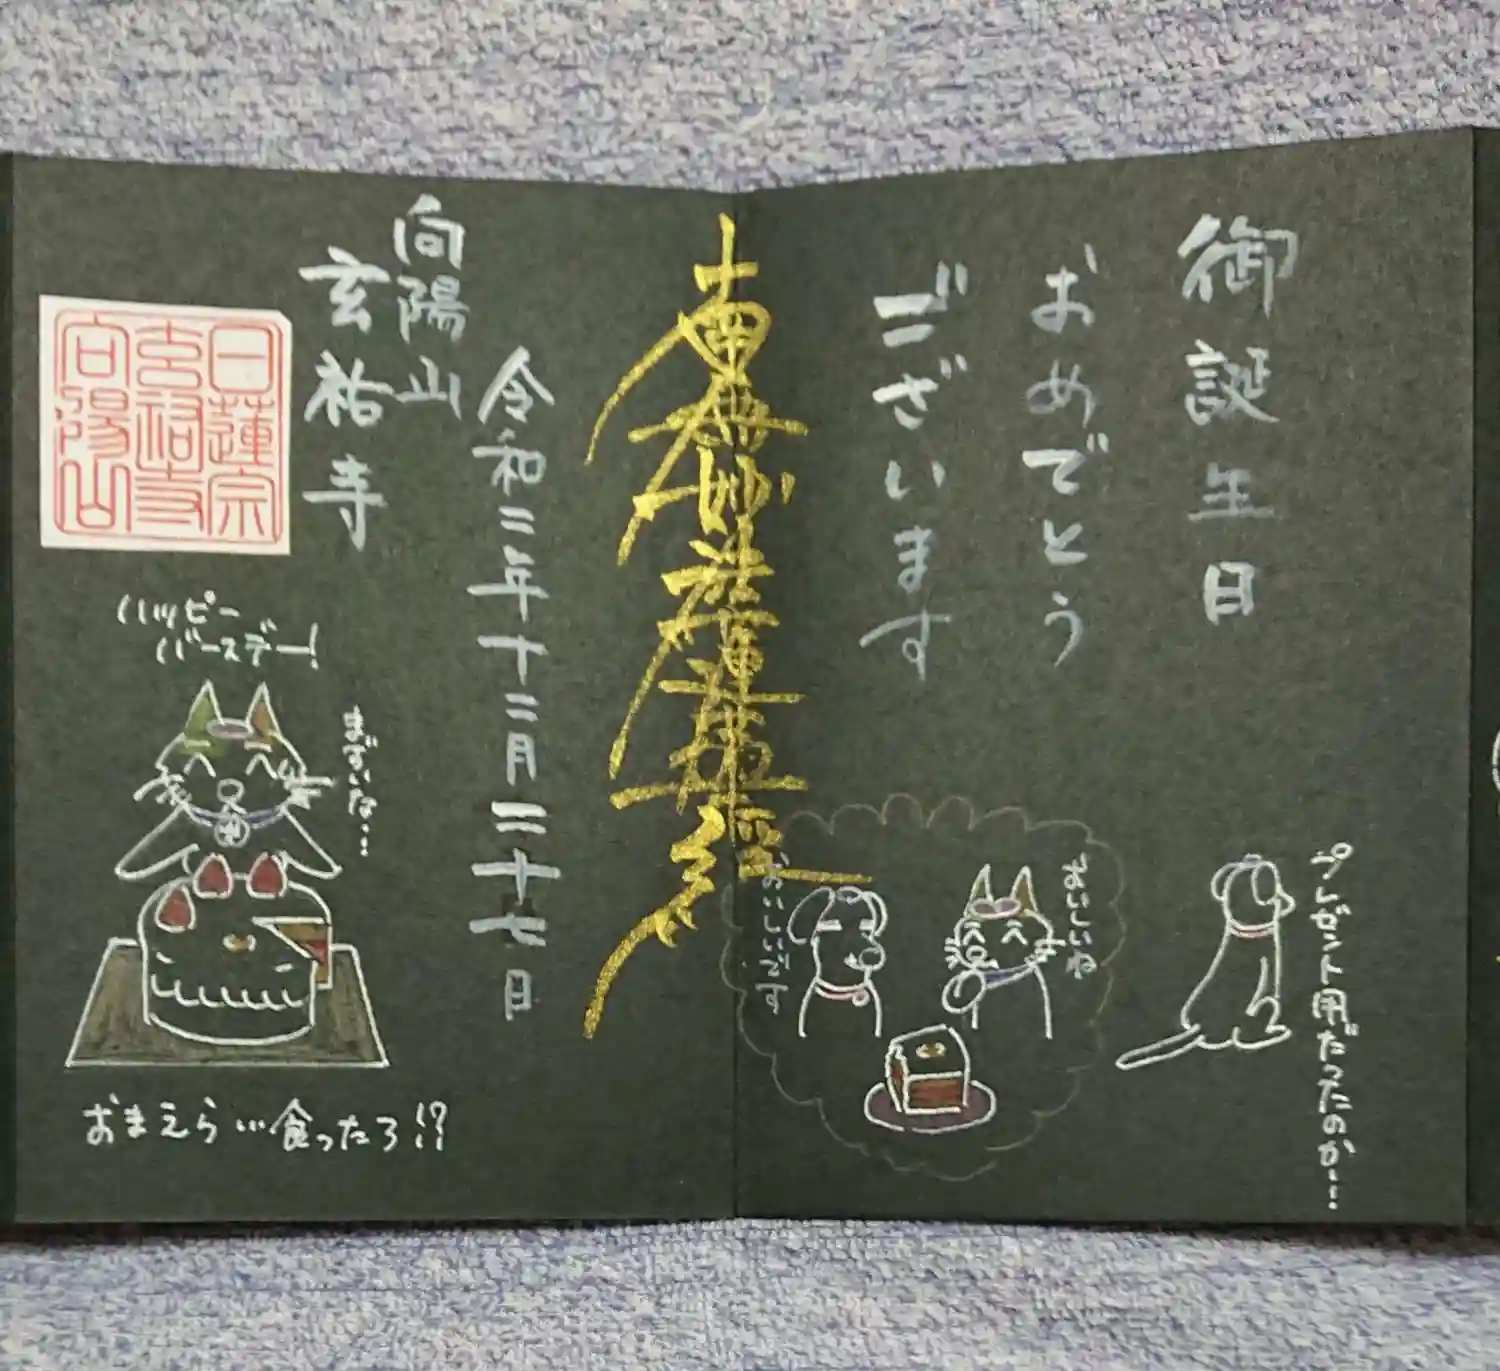 御誕生日
おめでとう
ございます
南無妙法蓮華経
令和二年十二月二十七日
向陽山
玄祐寺
日蓮宗
玄祐寺
向陽山
プレゼント用だったのか…!
おいしいね
おいしいです
ハッピー
バースデー!
まずいな…!
おまえら…食ったろ!?